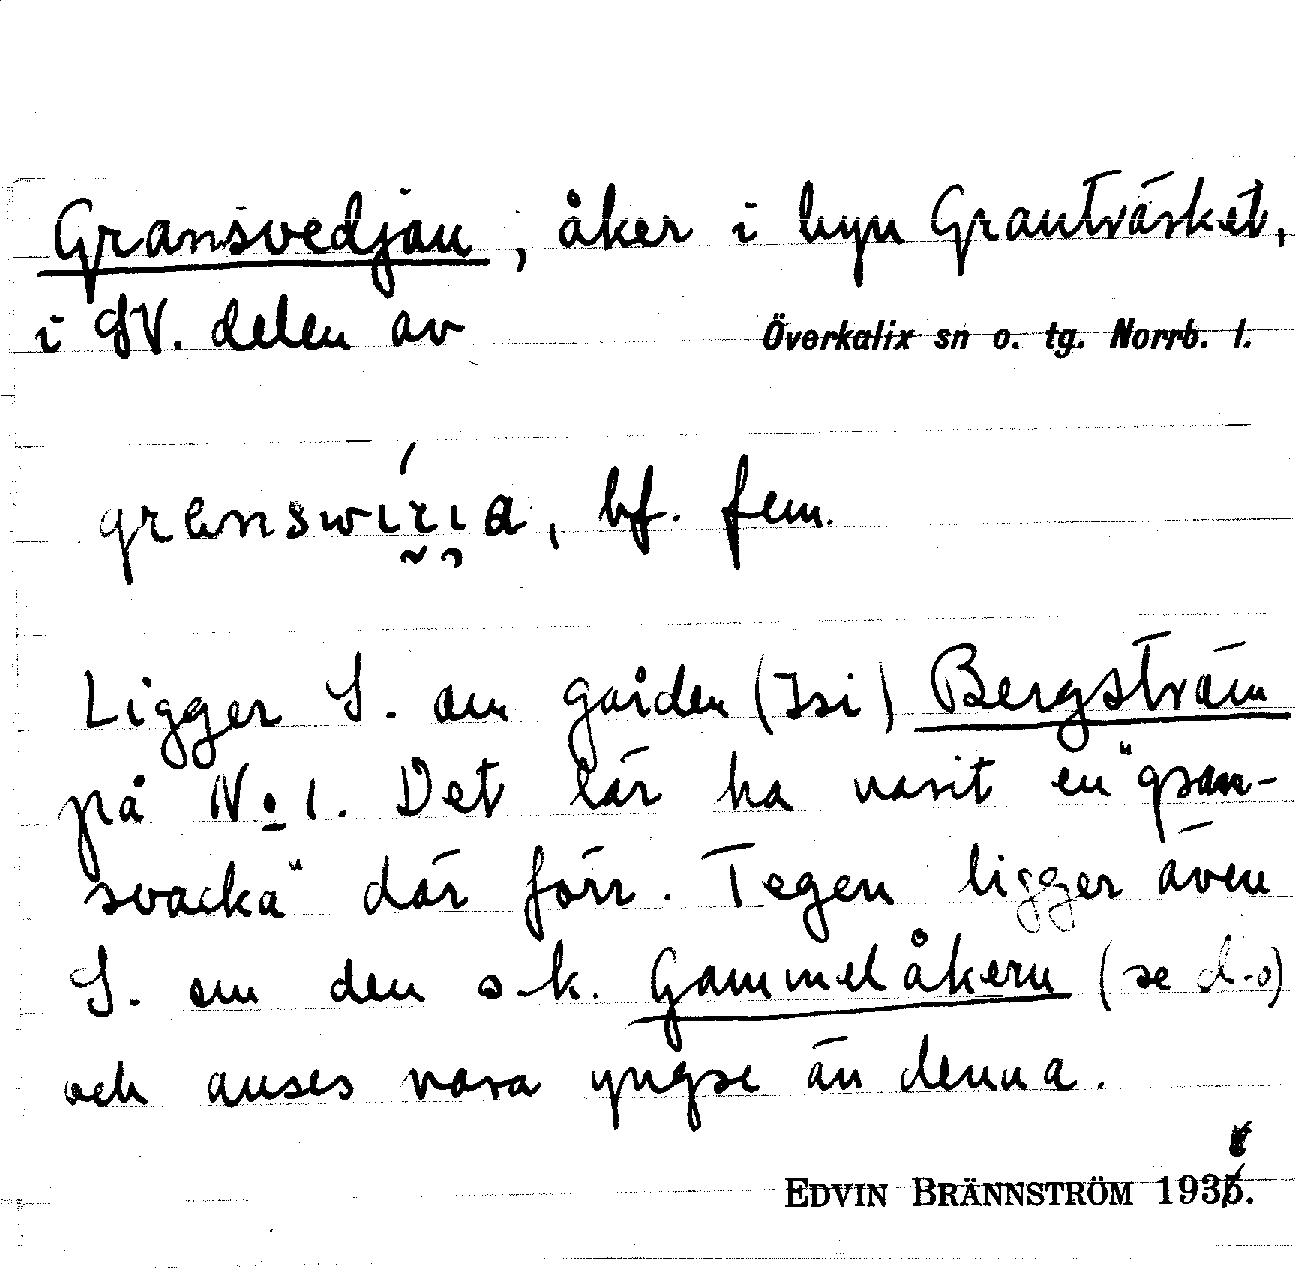 Gransvedjan, åker i byn Granträsket,
i SV. delen av Överkalix sn o. tg. Norrb. l.
bf. fem.
Ligger S. om gården (Isi) Bergström
på No 1. Det lär ha varit en "gran-
svacka" där förr. Tegen ligger även
S. om den s.k. Gammelåkern (se d.o)
och anses vara yngre än denna.
EDVIN BRÄNNSTRÖM